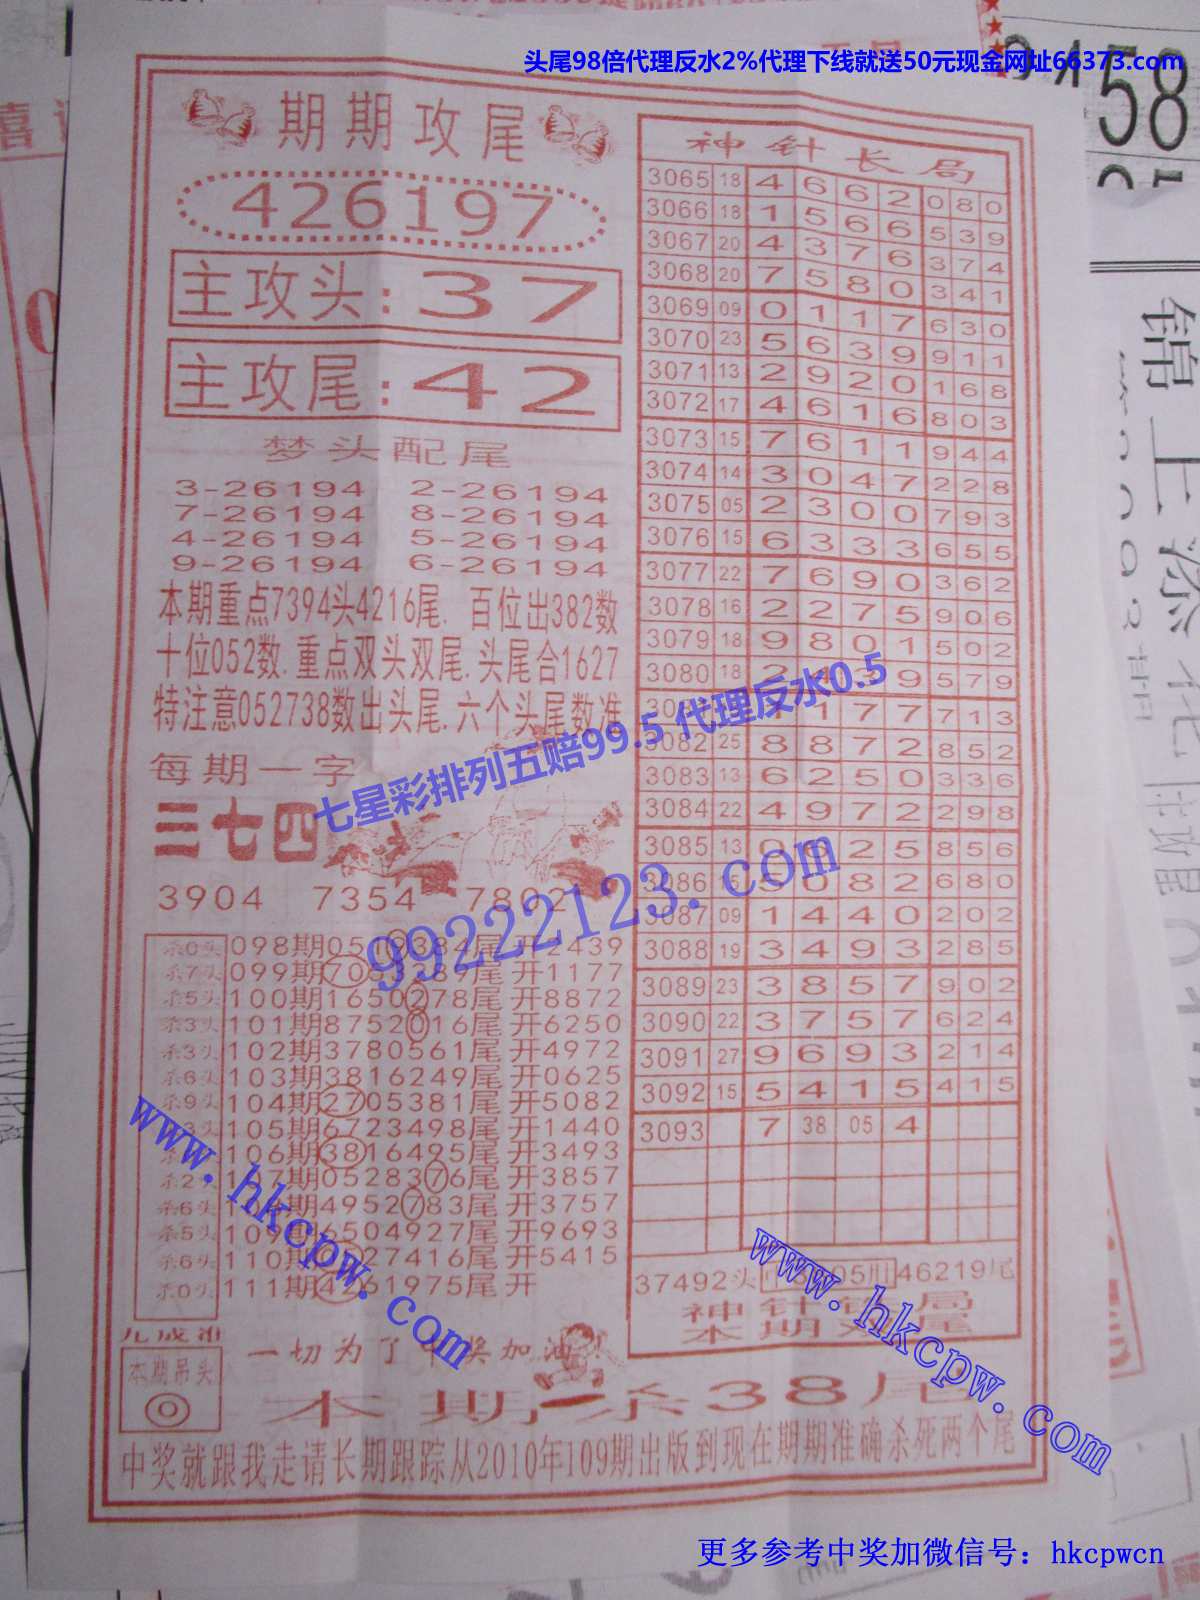 头尾98倍代理反水2%代理下线就送50元现金网址66373.com
58
期期攻尾
426197
主攻头:37
主攻尾:42
梦头配尾
3-26194 2-26194
7-26194 8-26194
4-26194 5-26194
9-26194 6-26194
本期重点7394头4216尾. 百位出382数
十位052数.重点双头双尾.头尾合1627
特注意052738数出头尾.六个头尾数准
每期一字
三七四
3904 7354 7802
杀0头 098期0510384尾开2439
杀7头 099期7053289尾开1177
杀5头 100期1650278尾开8872
杀3头 101期8752016尾开6250
杀3头 102期3780561尾开4972
杀6头 103期3816249尾开0625
杀9头 104期2705381尾开5082
105期6723498尾开1440
106期3816495尾开3493
杀2头 107期0528376尾开3857
杀6头 4952783尾开3757
杀5头 109期6504927尾开9693
杀6头 110期27416尾开5415
杀0头 111期4261975尾开
一切为了中奖加油!
本期吊头
◎
神针长局
3065 18 4 6 6 2 0 8 0
3066 18 1 5 6 6 5 3 9
3067 20 4 3 7 6 3 7 4
3068 20 7 5 8 0 3 4 1
3069 09 0 1 1 7 6 3 0
3070 23 5 6 3 9 9 1 1
3071 13 2 9 2 0 1 6 8
3072 17 4 6 1 6 8 0 3
3073 15 7 6 1 1 9 4 4
3074 14 3 0 4 7 2 2 8
3075 05 2 3 0 0 7 9 3
3076 15 6 3 3 3 6 5 5
3077 22 7 6 9 0 3 6 2
3078 16 2 2 7 5 9 0 6
3079 18 9 8 0 1 5 0 2
3080 18 2 4 3 9 5 7 9
1 7 7 7 1 3
3082 25 8 8 7 2 8 5 2
3083 13 6 2 5 0 3 3 6
3084 22 4 9 7 2 2 9 8
3085 13 0 6 2 5 8 5 6
3086 15 5 0 8 2 6 8 0
3087 09 1 4 4 0 2 0 2
3088 19 3 4 9 3 2 8 5
3089 23 3 8 5 7 9 0 2
3090 22 3 7 5 7 6 2 4
3091 27 9 6 9 3 2 1 4
3092 15 5 4 1 5 4 1 5
3093 7 38 05 4
37492头 46219尾
本期杀38尾
中奖就跟我走请长期跟踪从2010年109期出版到现在期期准确杀死两个尾
七星彩排列五赔99.5 代理反水0.5
99222123.com
www.hkcpw.com
www.hkcpw.com
锦上添花
更多参考中奖加微信号：hkcpwcn